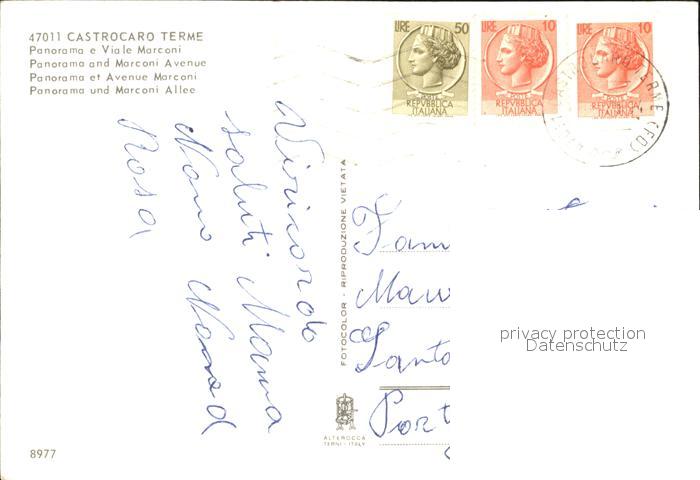 47011 CASTROCARO TERME
Panorama e Viale Marconi
Panorama and Marconi Avenue
Panorama et Avenue Marconi
Panorama und Marconi Allee
LIRE 50
POSTE
REPVBBLICA
ITALIANA
LIRE 10
POSTE
REPVBBLICA
ITALIANA
LIRE 10
POSTE
REPVBBLICA
ITALIANA
TERME (FO)
Vi ricordo
saluti Mama
Nono Nona d
Rosa
FOTOCOLOR - RIPRODUZIONE VIETATA
Fam
Santo
Port
privacy protection
Datenschutz
ALTEROCCA
TERNI - ITALY
8977